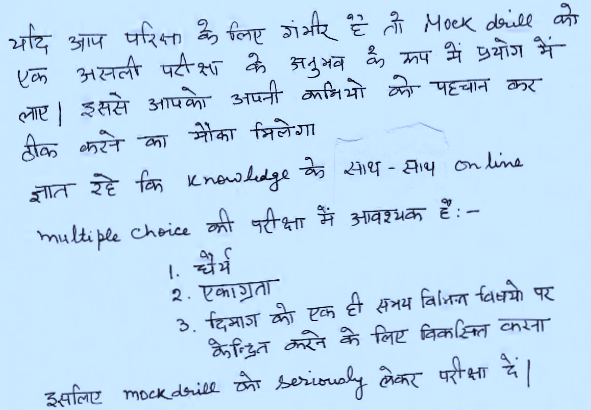 यदि आप परिक्षा के लिए गंभीर हैं तो Mock drill को
एक असली परीक्षा के अनुभव के रूप में प्रयोग में
लाए। इससे आपको अपनी कमियो को पहचान कर
ठीक करने का मौका मिलेगा
ज्ञात रहे कि Knowledge के साथ-साथ online
multiple choice की परीक्षा में आवश्यक है:-
1. धैर्य
2. एकाग्रता
3. दिमाग को एक ही समय विभिन्न विषयो पर
केन्द्रित करने के लिए विकसित करना
इसलिए mockdrill को seriously लेकर परीक्षा दें।